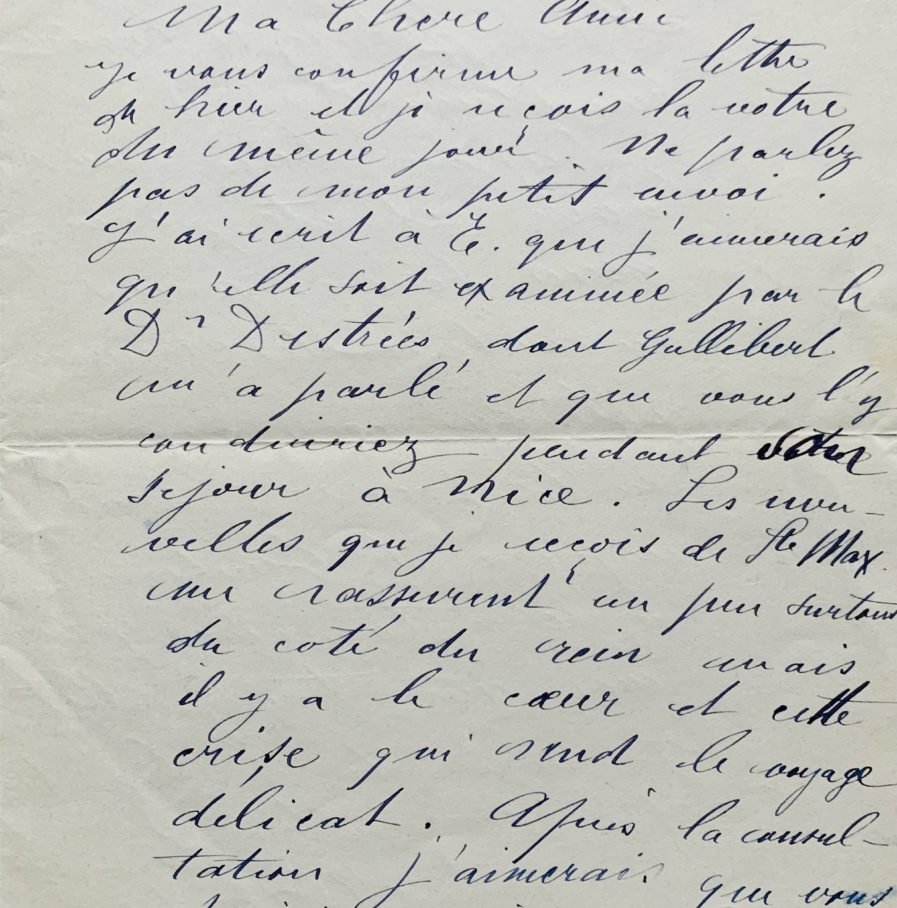 Ma Chere Annie
Je vous confirme ma lettre
du hier et je reçois la votre
du même jour. Ne parlez
pas de mon petit envoi.
J'ai ecrit à E. que j'aimerais
qu'elle soit examinée par le
Dr Destrées dont Gallibert
m'a parlé et que vous l'y
conduiriez pendant votre
sejour à Nice. Les nou-
velles que je reçois de Ste Max.
me rassurent un peu surtout
du coté du rein mais
il y a le cœur et cette
crise qui rend le voyage
délicat. Après la consul-
tation j'aimerais que vous